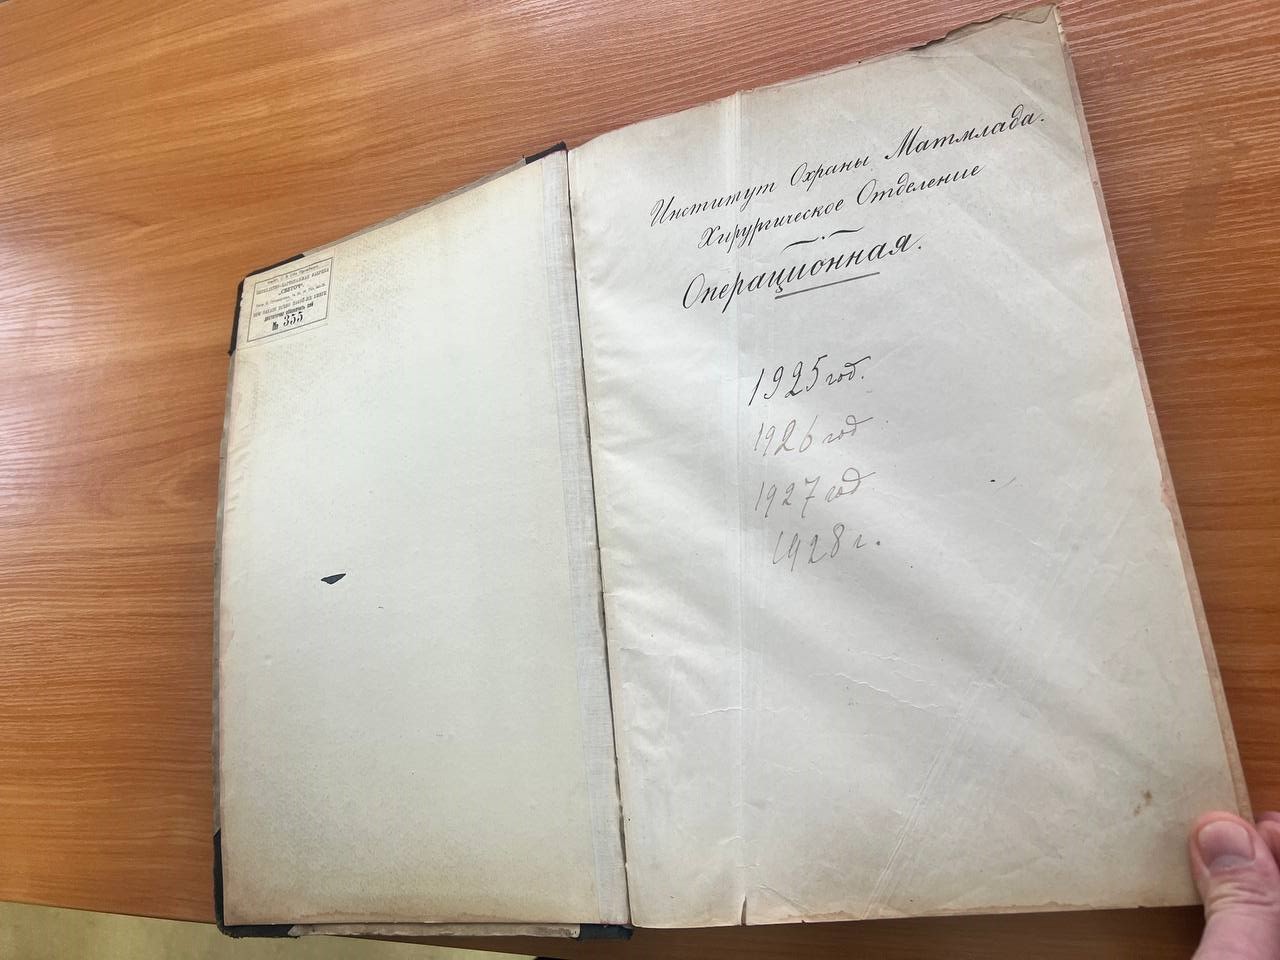 "СВЕТОЧ"
№ 355
Институт Охраны Матмлада.
Хирургическое Отделение
Операционная.
1925 год.
1926 год
1927 год
1928 г.